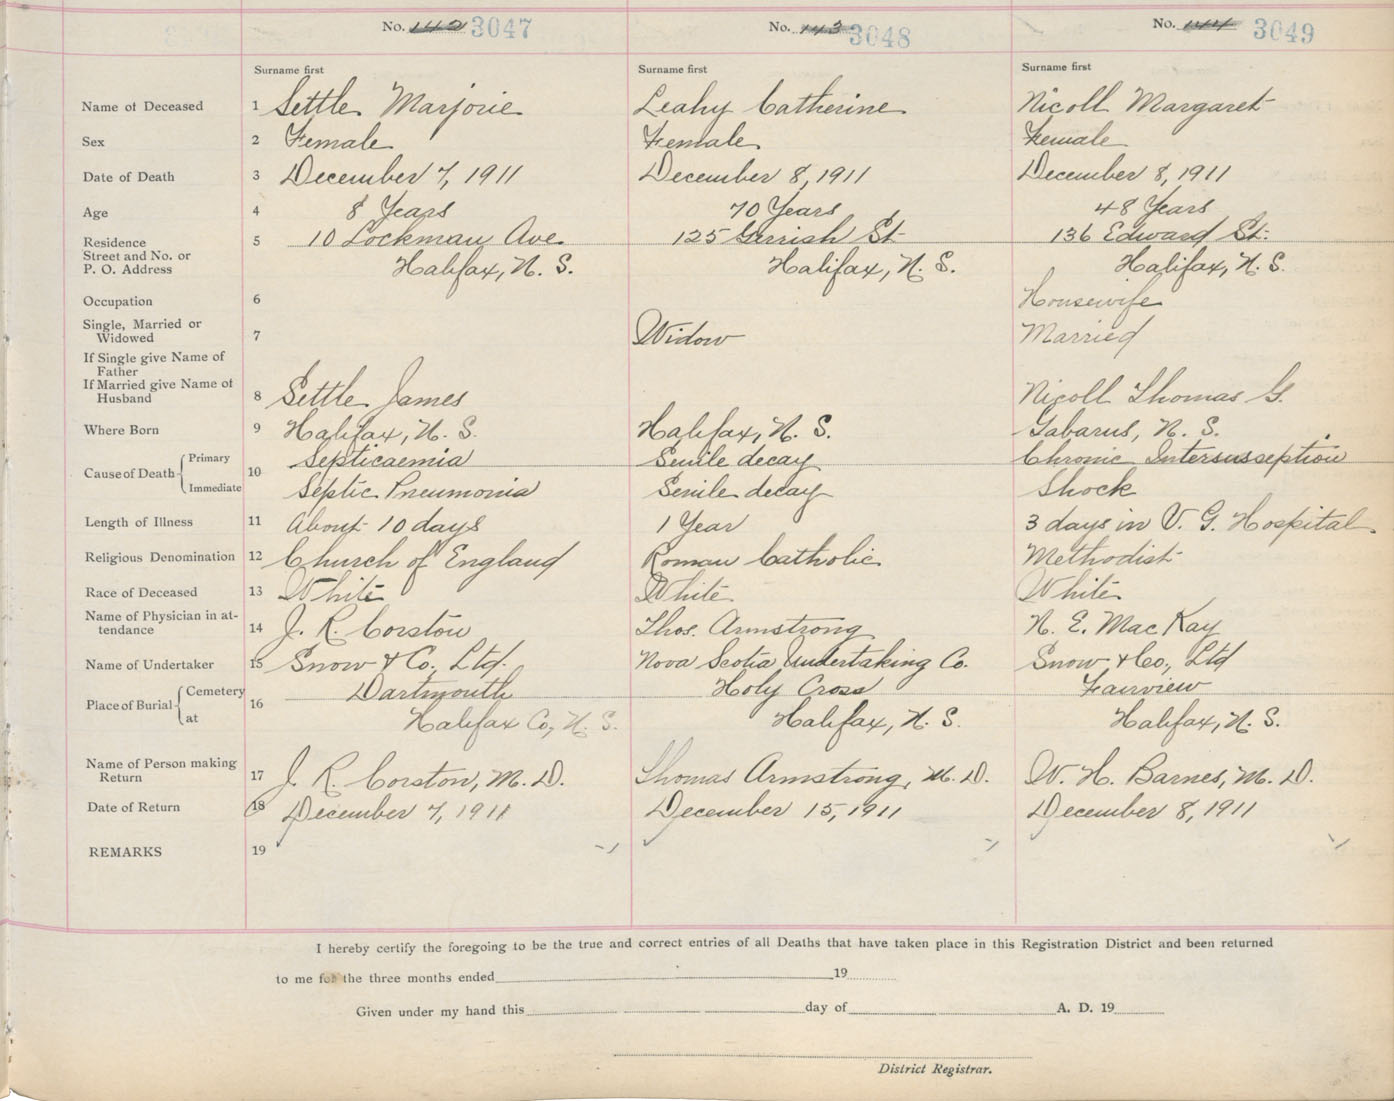 No. 142 3047 No. 143 3048 No. 144 3049
Surname first Surname first Surname first
Name of Deceased 1 Settle Marjorie Leahy Catherine Nicoll Margaret
Sex 2 Female Female Female
Date of Death 3 December 7, 1911 December 8, 1911 December 8, 1911
Age 4 8 Years 70 Years 48 Years
Residence 5 10 Lockman Ave. 125 Gerrish St. 136 Edward St.
Street and No. or
P. O. Address Halifax, N. S. Halifax, N. S. Halifax, N. S.
Occupation 6 Housewife
Single, Married or
Widowed 7 Widow Married
If Single give Name of
Father
If Married give Name of
Husband 8 Settle James Nicoll Thomas G.
Where Born 9 Halifax, N. S. Halifax, N. S. Gabarus, N. S.
Cause of Death 10 Primary Septicaemia Senile decay Chronic Intersusseption
Immediate Septic Pneumonia Senile decay Shock
Length of Illness 11 About 10 days 1 Year 3 days in V. G. Hospital
Religious Denomination 12 Church of England Roman Catholic Methodist
Race of Deceased 13 White White White
Name of Physician in at-
tendance 14 J. R. Corston Thos. Armstrong N. E. MacKay
Name of Undertaker 15 Snow & Co., Ltd. Nova Scotia Undertaking Co. Snow & Co., Ltd
Place of Burial 16 Cemetery Dartmouth Holy Cross Fairview
at Halifax Co, N. S. Halifax, N. S. Halifax, N. S.
Name of Person making
Return 17 J. R. Corston, M. D. Thomas Armstrong, M. D. W. H. Barnes, M. D.
Date of Return 18 December 7, 1911 December 15, 1911 December 8, 1911
REMARKS 19
I hereby certify the foregoing to be the true and correct entries of all Deaths that have taken place in this Registration District and been returned
to me for the three months ended 19
Given under my hand this day of A. D. 19
District Registrar.